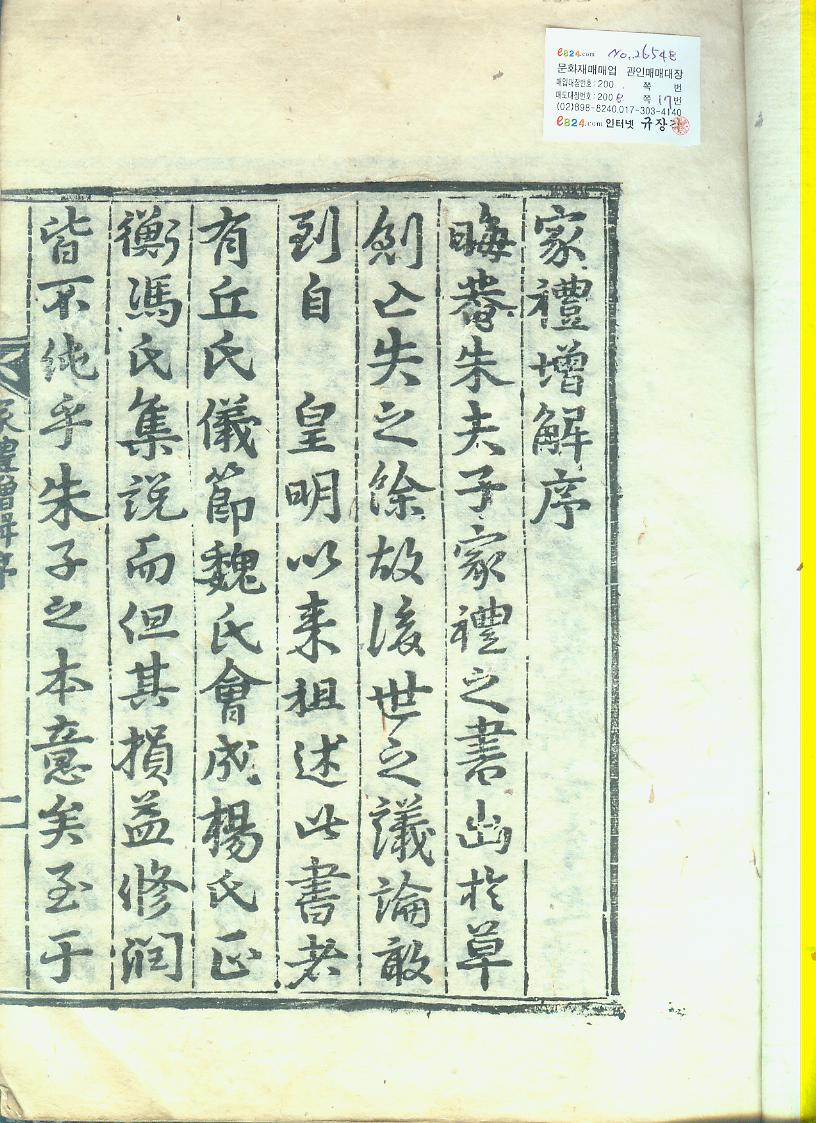 e824.com No. 26548
문화재매매업 관인매매대장
매입대장번호 : 200 . 쪽 번
매도대장번호 : 200 8 쪽 17번
(02)898-8240,017-303-4140
e824.com 인터넷 규장각
家禮增解序
晦菴朱夫子家禮之書出於草
創亡失之餘故後世之議論敢
到自 皇明以来祖述此書者
有丘氏儀節魏氏會成楊氏正
衡馮氏集說而但其損益修潤
皆不純乎朱子之本意矣至于
家禮增解序
一